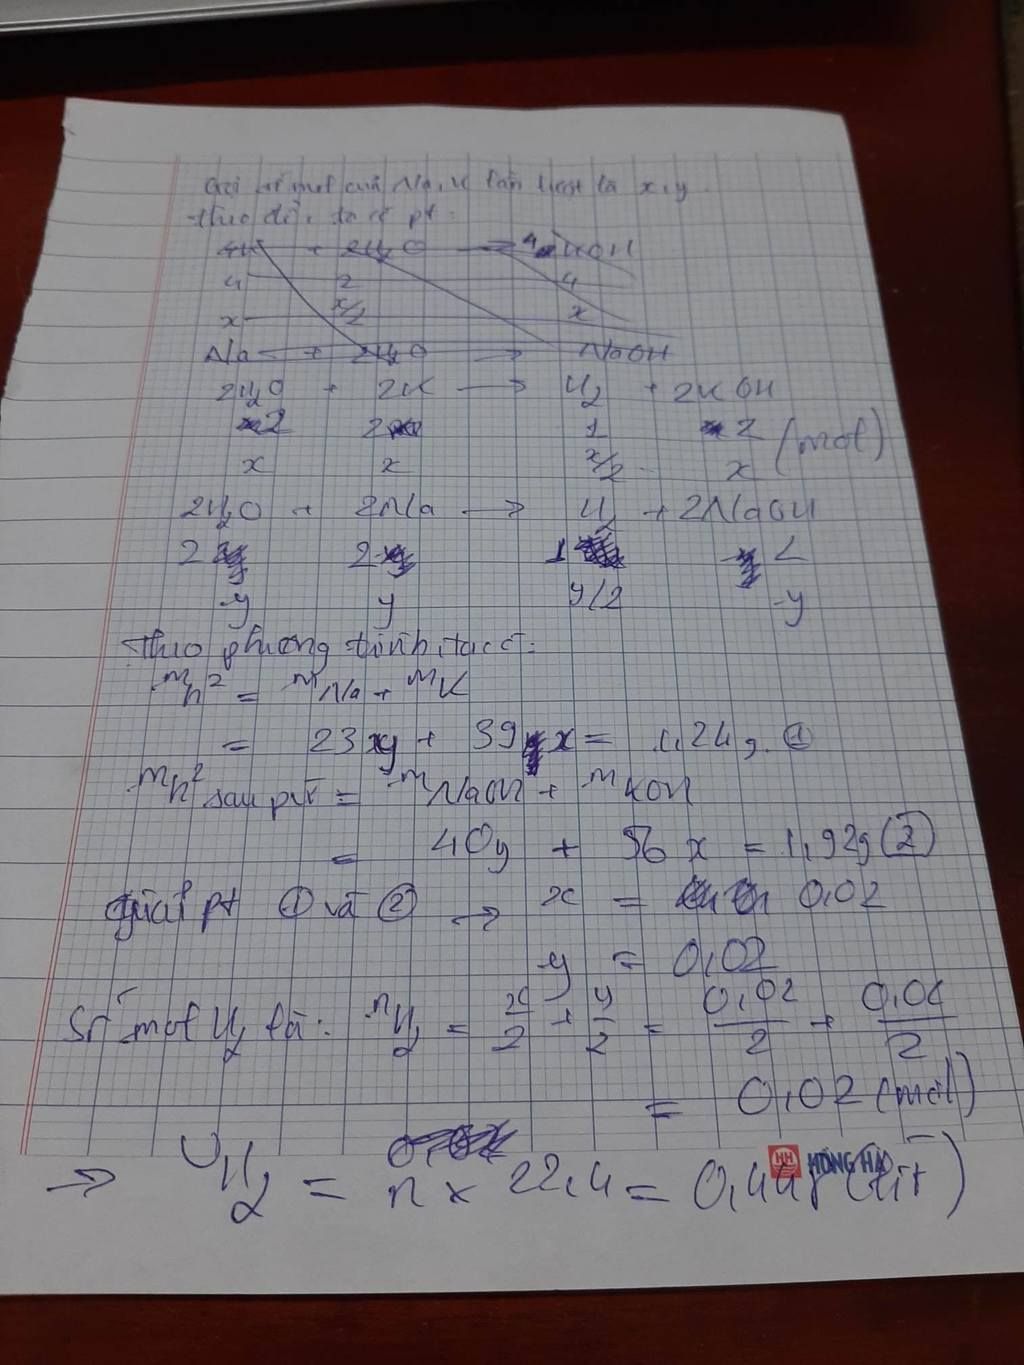 Gọi số mol của Na, K lần lượt là x, y.
theo đề, ta có pt:
4K + 2H2O → 4 KOH
4 2 4
x x/2 x
Na + 2H2O → NaOH
2H2O + 2K → H2 + 2KOH
2 2 1 2 (mol)
x x x/2 x
2H2O + 2Na → H2 + 2NaOH
2 2 1 2
y y y/2 y
Theo phương trình, ta có:
mh2 = mNa + mK
= 23y + 39x = 1,24g. ①
mh2 sau pư = mNaOH + mKOH
= 40y + 56x = 1,92g (2)
Giải pt ① và ② → x = 0,02
y = 0,02
Số mol H2 là: nH2 = x/2 + y/2 = 0,02/2 + 0,02/2
= 0,02 (mol)
⇒ VH2 = n x 22,4 = 0,448 (lít)
HH HỒNG HÀ